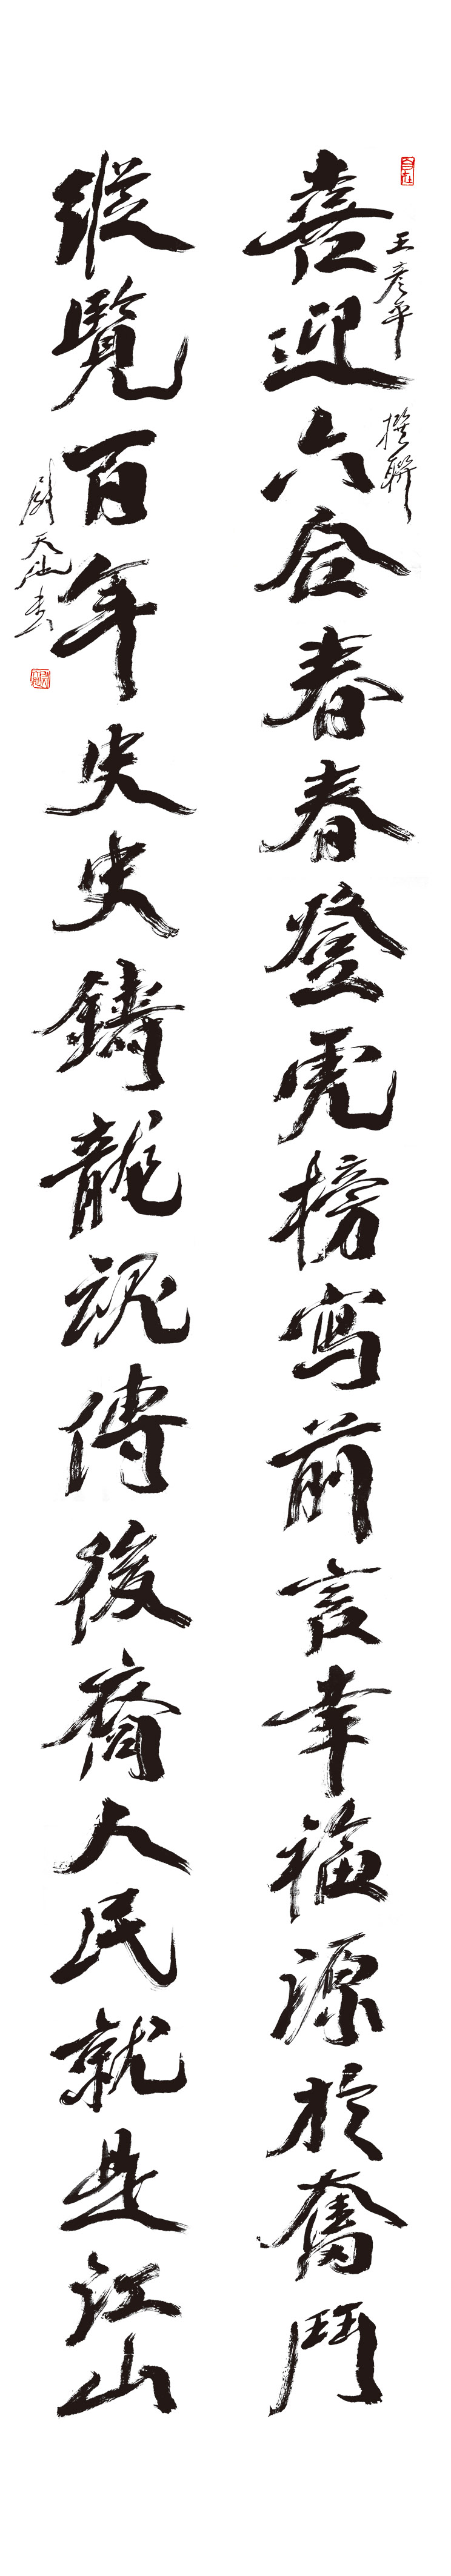 王彦平
撰聯
喜迎六合春春登虎榜寫前言幸福源於奮鬥
縱覽百年史史鑄龍魂傳後裔人民就是江山
天仙書